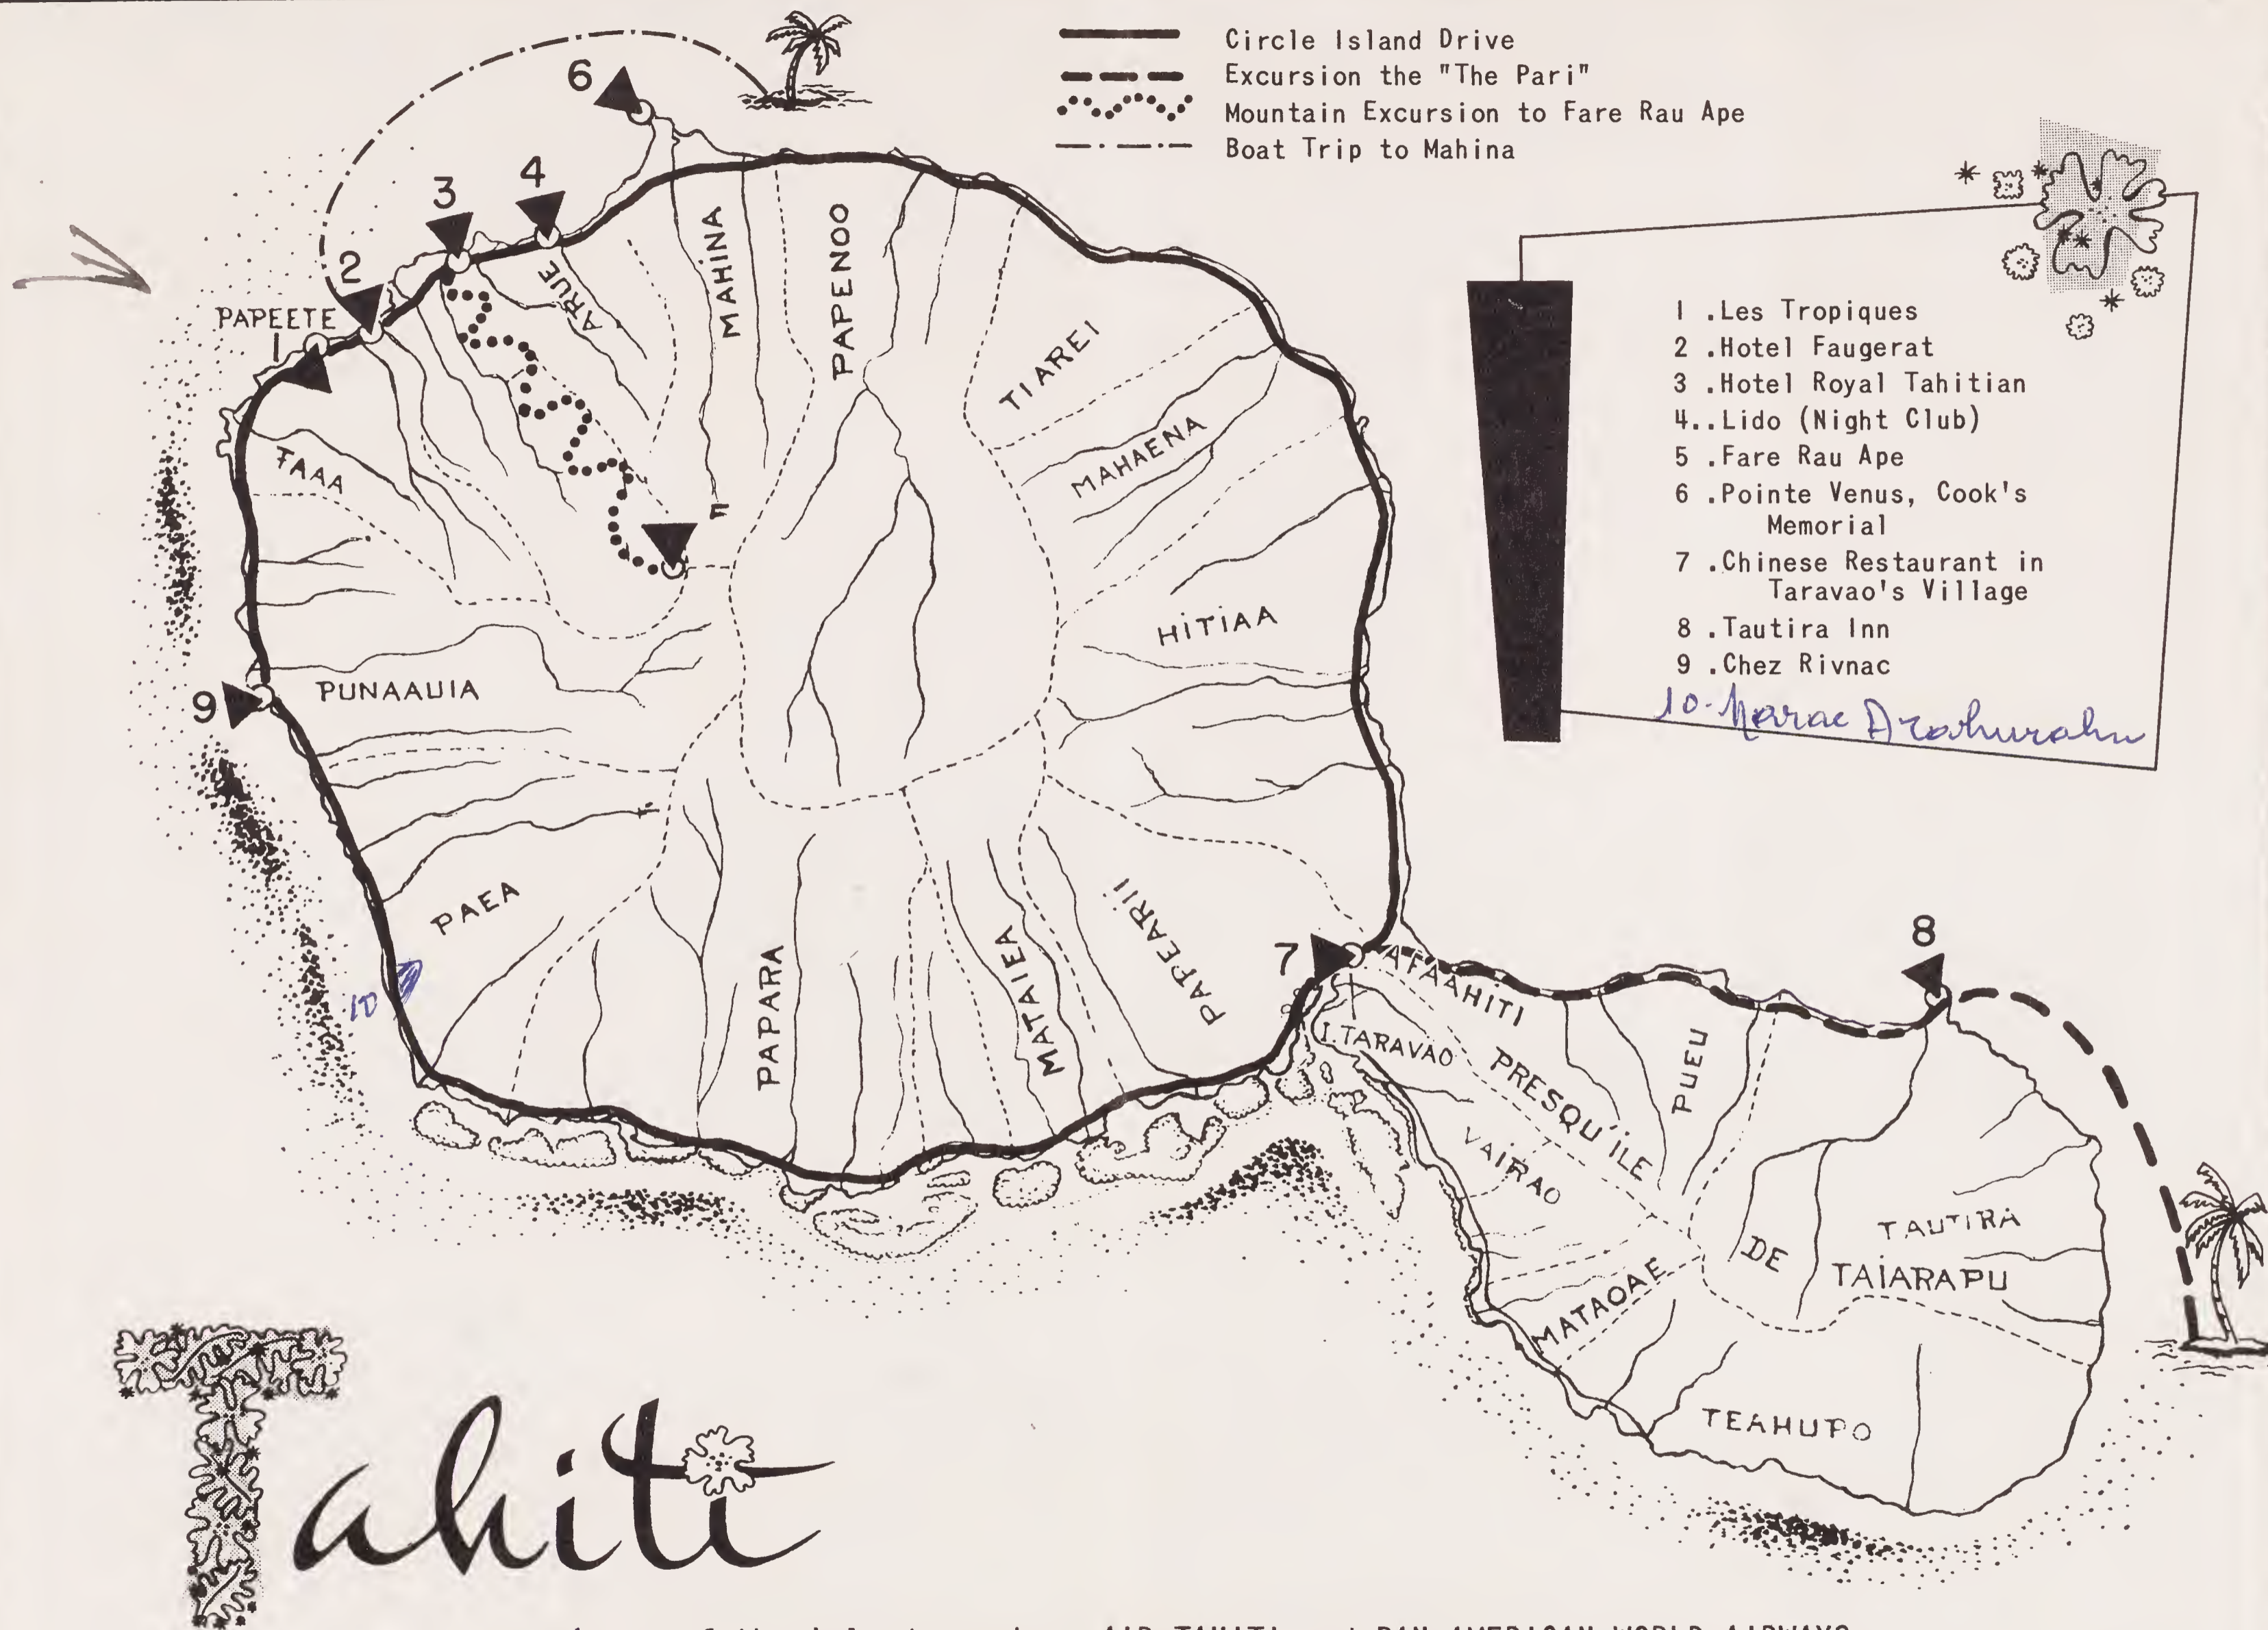 Circle Island Drive
Excursion the "The Pari"
Mountain Excursion to Fare Rau Ape
Boat Trip to Mahina
1 .Les Tropiques
2 .Hotel Faugerat
3 .Hotel Royal Tahitian
4..Lido (Night Club)
5 .Fare Rau Ape
6 .Pointe Venus, Cook's
Memorial
7 .Chinese Restaurant in
Taravao's Village
8 .Tautira Inn
9 .Chez Rivnac
10-Marae Arahurahu
6
4
3
2
PAPEETE
1
ARUE
MAHINA
PAPENOO
TIAREI
FAAA
MAHAENA
HITIAA
9
PUNAAUIA
PAEA
10
PAPARA
MATAIEA
PAPEARII
7
AFAAHITI
8
I. TARAVAO
PRESQU'ILE
PUEU
VAIRAO
DE
TAUTIRA
TAIARAPU
MATAOAE
TEAHUPO
Tahiti
AIR TAHITI
PAN AMERICAN WORLD AIRWAYS